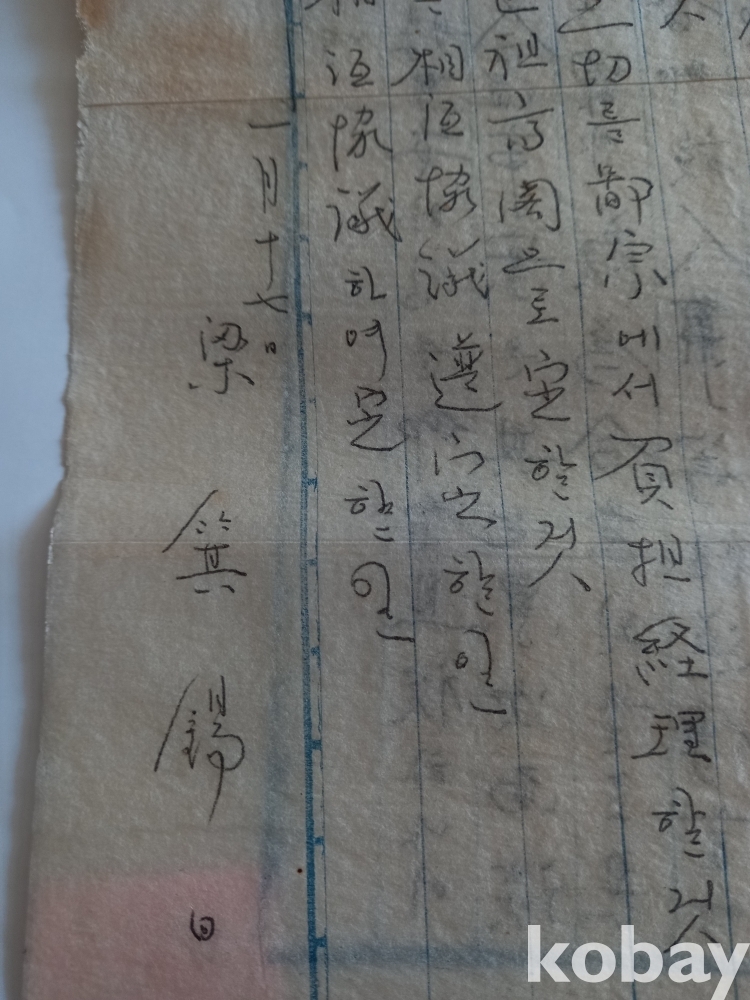 切를鄙宗에서負担経理할것
祖高閣으로定할것
相互協議 定할일
互協議하여定할일
一月十七日
梁箕錫
kobay